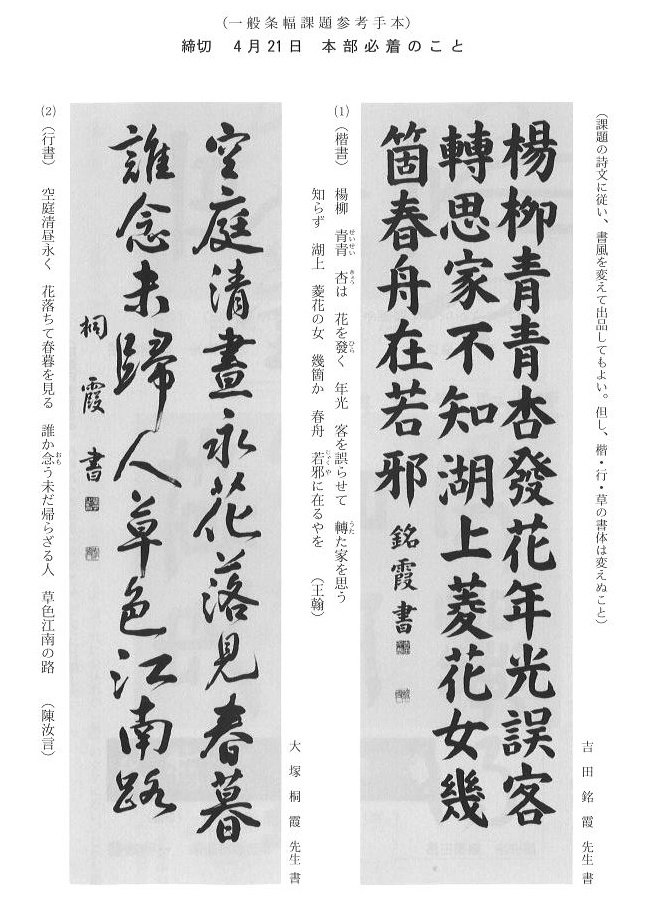 （一般条幅課題参考手本）
締切　4月21日　本部必着のこと
（課題の詩文に従い、書風を変えて出品してもよい。但し、楷・行・草の書体は変えぬこと）
吉田銘霞先生書
楊柳青青杏發花年光誤客
轉思家不知湖上菱花女幾
箇春舟在若邪
銘霞書
(1)（楷書）　楊柳　青青　杏は　花を發く　年光　客を誤らせて　轉た家を思う
せいせい　きょう　ひら　うた
知らず　湖上　菱花の女　幾箇か　春舟　若邪に在るやを　（王翰）
じゃくや
大塚桐霞先生書
空庭清晝永花落見春暮
誰念未歸人草色江南路
桐霞書
(2)（行書）　空庭清昼永く　花落ちて春暮を見る　誰か念う未だ帰らざる人　草色江南の路　（陳汝言）
おも